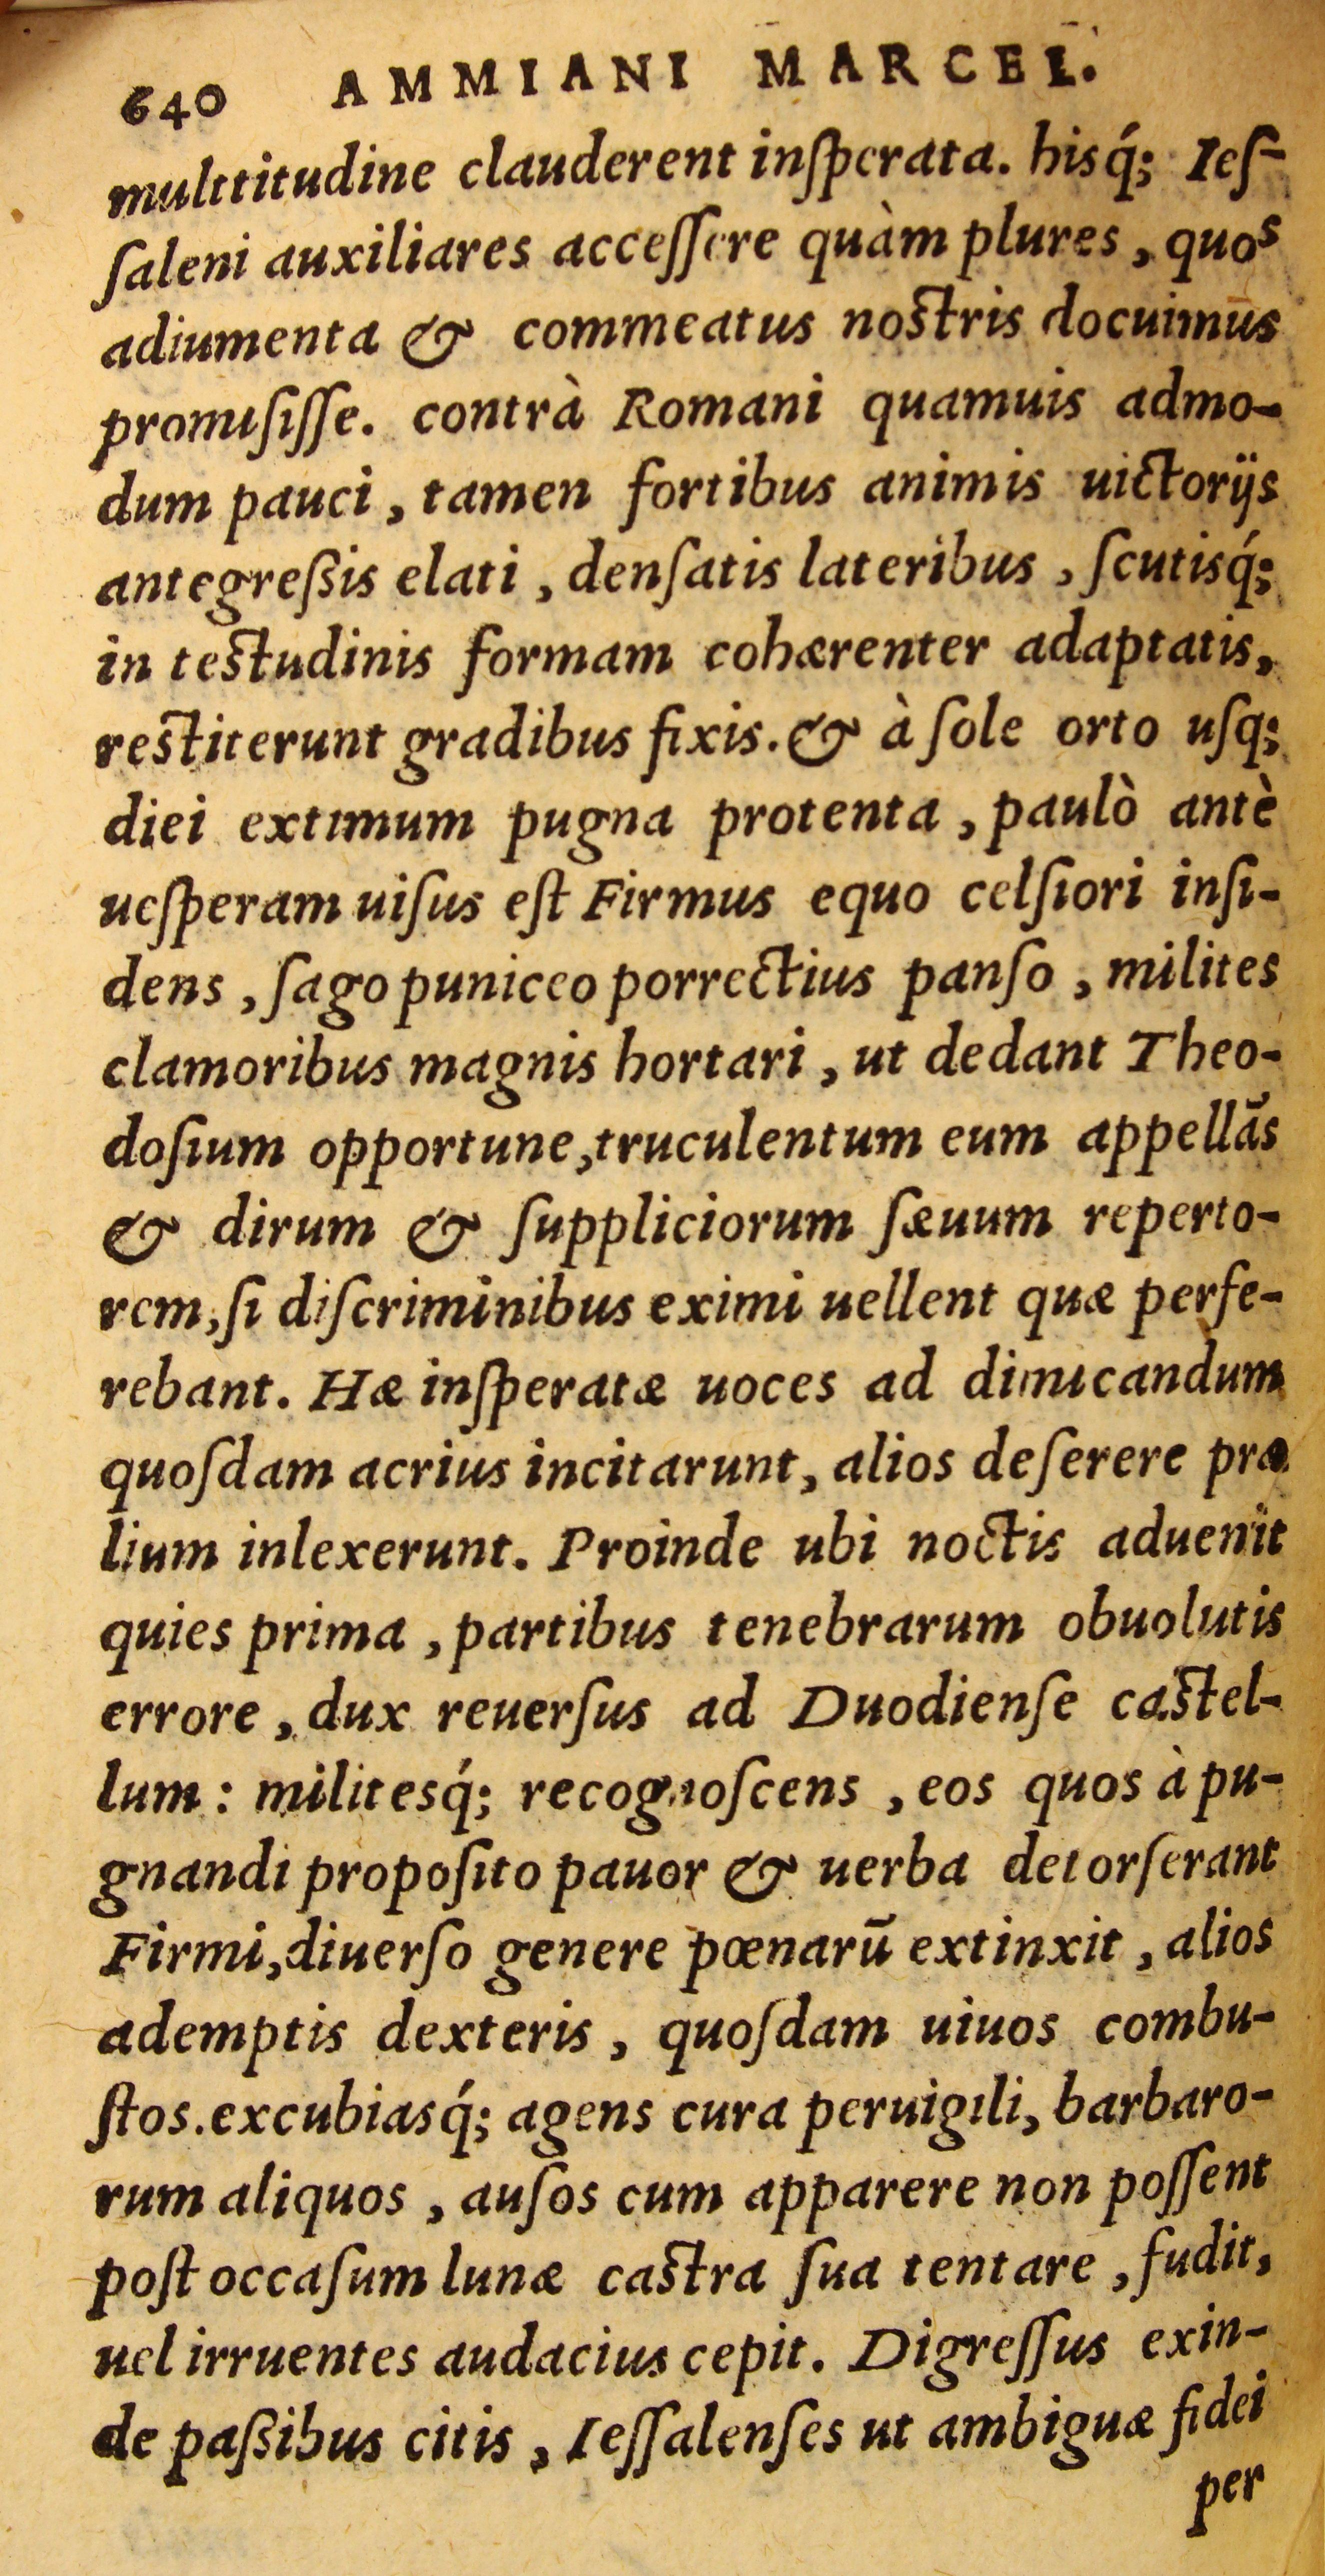 640 AMMIANI MARCEL.
multtitudine clauderent inſperata. hisq́; Ieſ-
ſaleni auxiliares acceſſere quàm plures, quos
adiumenta & commeatus nostris docuimus
promiſiſſe. contrà Romani quamuis admo-
dum pauci, tamen fortibus animis uictorijs
antegreßis elati, denſatis lateribus, ſcutisq́;
in testudinis formam cohærenter adaptatis,
restiterunt gradibus fixis. & à ſole orto uſq;
diei extimum pugna protenta, paulò antè
ueſperam uiſus eſt Firmus equo celſiori inſi-
dens, ſago puniceo porrectius panſo, milites
clamoribus magnis hortari, ut dedant Theo-
doſium opportune, truculentum eum appellãs
& dirum & ſuppliciorum ſæuum reperto-
rem, ſi diſcriminibus eximi uellent quæ perfe-
rebant. Hæ inſperatæ uoces ad dimicandum
quoſdam acrius incitarunt, alios deſerere præ
lium inlexerunt. Proinde ubi noctis aduenit
quies prima, partibus tenebrarum obuolutis
errore, dux reuerſus ad Duodienſe castel-
lum: militesq́; recognoſcens, eos quos à pu-
gnandi propoſito pauor & uerba detorſerant
Firmi, diuerſo genere pœnarũ extinxit, alios
ademptis dexteris, quoſdam uiuos combu-
ſtos. excubiasq́; agens cura peruigili, barbaro-
rum aliquos, auſos cum apparere non poſſent
poſt occaſum lunæ castra ſua tentare, fudit,
uel irruentes audacius cepit. Digreſſus exin-
de paßibus citis, Ieſſalenſes ut ambiguæ fidei
per